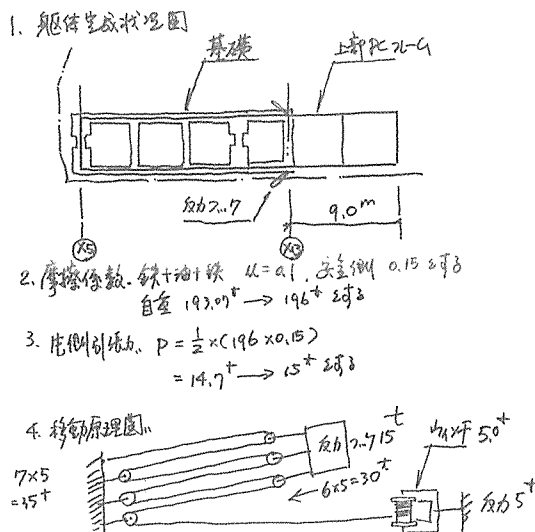 1. 躯体完成状況図
基礎
上部PCフレーム
反力フック
9.0m
X5
X3
2. 摩擦係数. 鉄+油+鉄 μ=0.1. 安全側 0.15とする
自重 193.07t → 196tとする
3. 片側引張力 P = 1/2×(196×0.15)
= 14.7t → 15tとする
4. 移動原理図
7×5
=35t
反力フック 15t
6×5=30t
ウインチ 5.0t
反力 5t